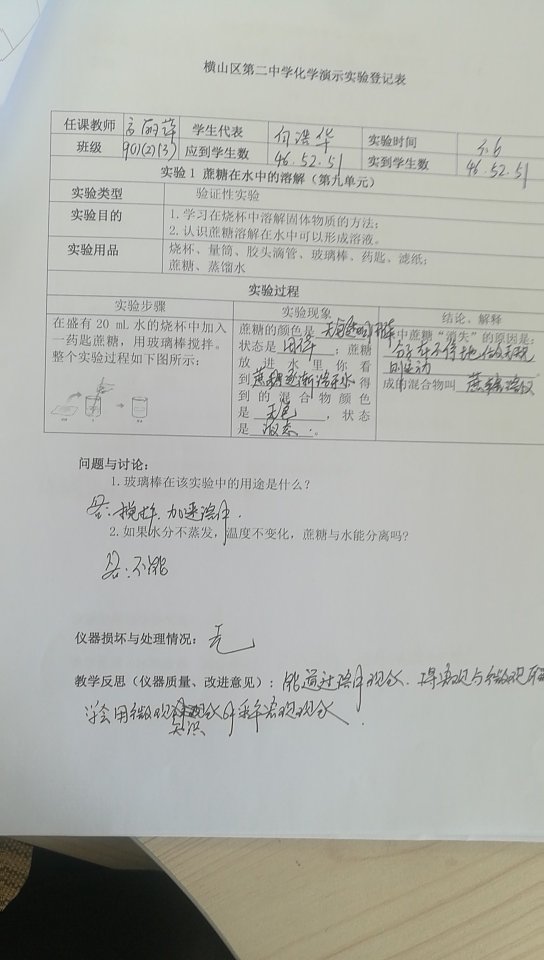 横山区第二中学化学演示实验登记表
任课教师 学生代表 何浩华 实验时间
班级 901(2)(3) 应到学生数 46.52.51 实到学生数 46.52.51
实验1 蔗糖在水中的溶解（第九单元）
实验类型 验证性实验
实验目的 1.学习在烧杯中溶解固体物质的方法；
2.认识蔗糖溶解在水中可以形成溶液。
实验用品 烧杯、量筒、胶头滴管、玻璃棒、药匙、滤纸；
蔗糖、蒸馏水
实验过程
实验步骤 实验现象 结论、解释
在盛有20 mL水的烧杯中加入
一药匙蔗糖，用玻璃棒搅拌。
整个实验过程如下图所示：
蔗糖的颜色是
状态是 固体 ；蔗糖
放进水里你看
到 蔗糖逐渐溶于水 得
到的混合物颜色
是 无色 ，状态
是 液态 。
中蔗糖“消失”的原因是：
分子在不停地做无规
则运动
成的混合物叫 蔗糖溶液
问题与讨论：
1.玻璃棒在该实验中的用途是什么？
答：搅拌，加速溶解．
2.如果水分不蒸发，温度不变化，蔗糖与水能分离吗？
答：不能
仪器损坏与处理情况： 无
教学反思（仪器质量、改进意见）：能通过溶解现象．将宏观与微观
学会用微观知识解释宏观现象．